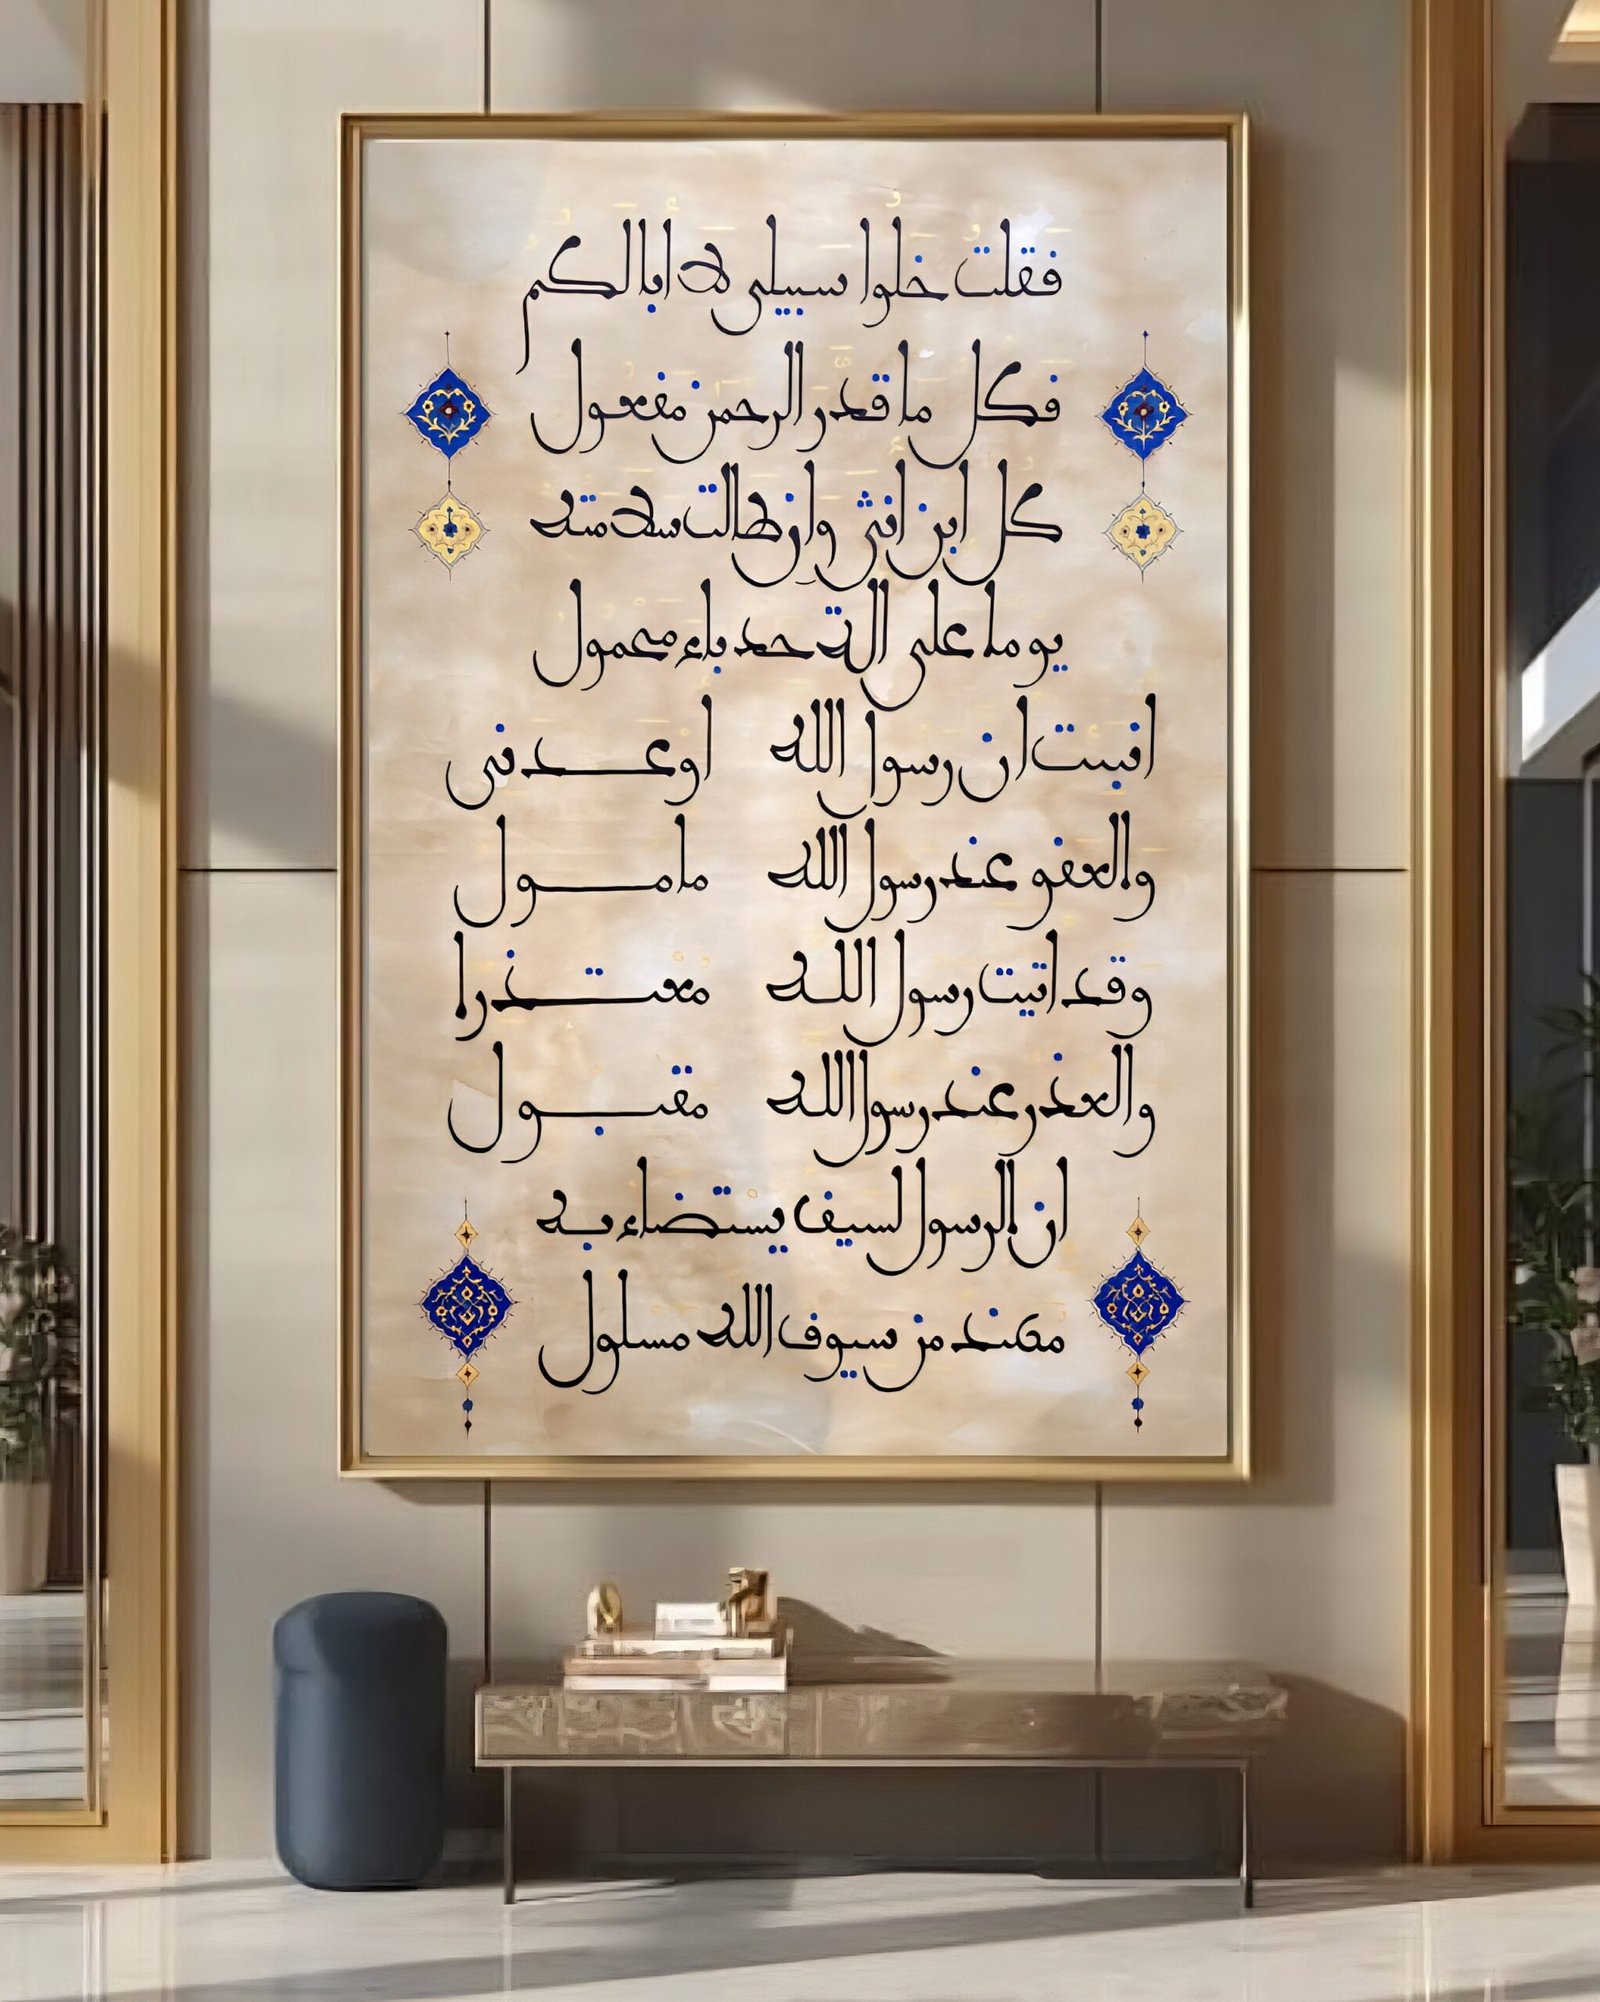 فقلت خلوا سبيلي لا أبا لكم
فكل ما قدر الرحمن مفعول
كل ابن انثى وان طالت سلامته
يوما على الة حدباء محمول
انبئت ان رسول الله اوعدني
والعفو عند رسول الله مامول
وقد اتيت رسول الله معتذرا
والعذر عند رسول الله مقبول
ان الرسول لسيف يستضاء به
مهند من سيوف الله مسلول